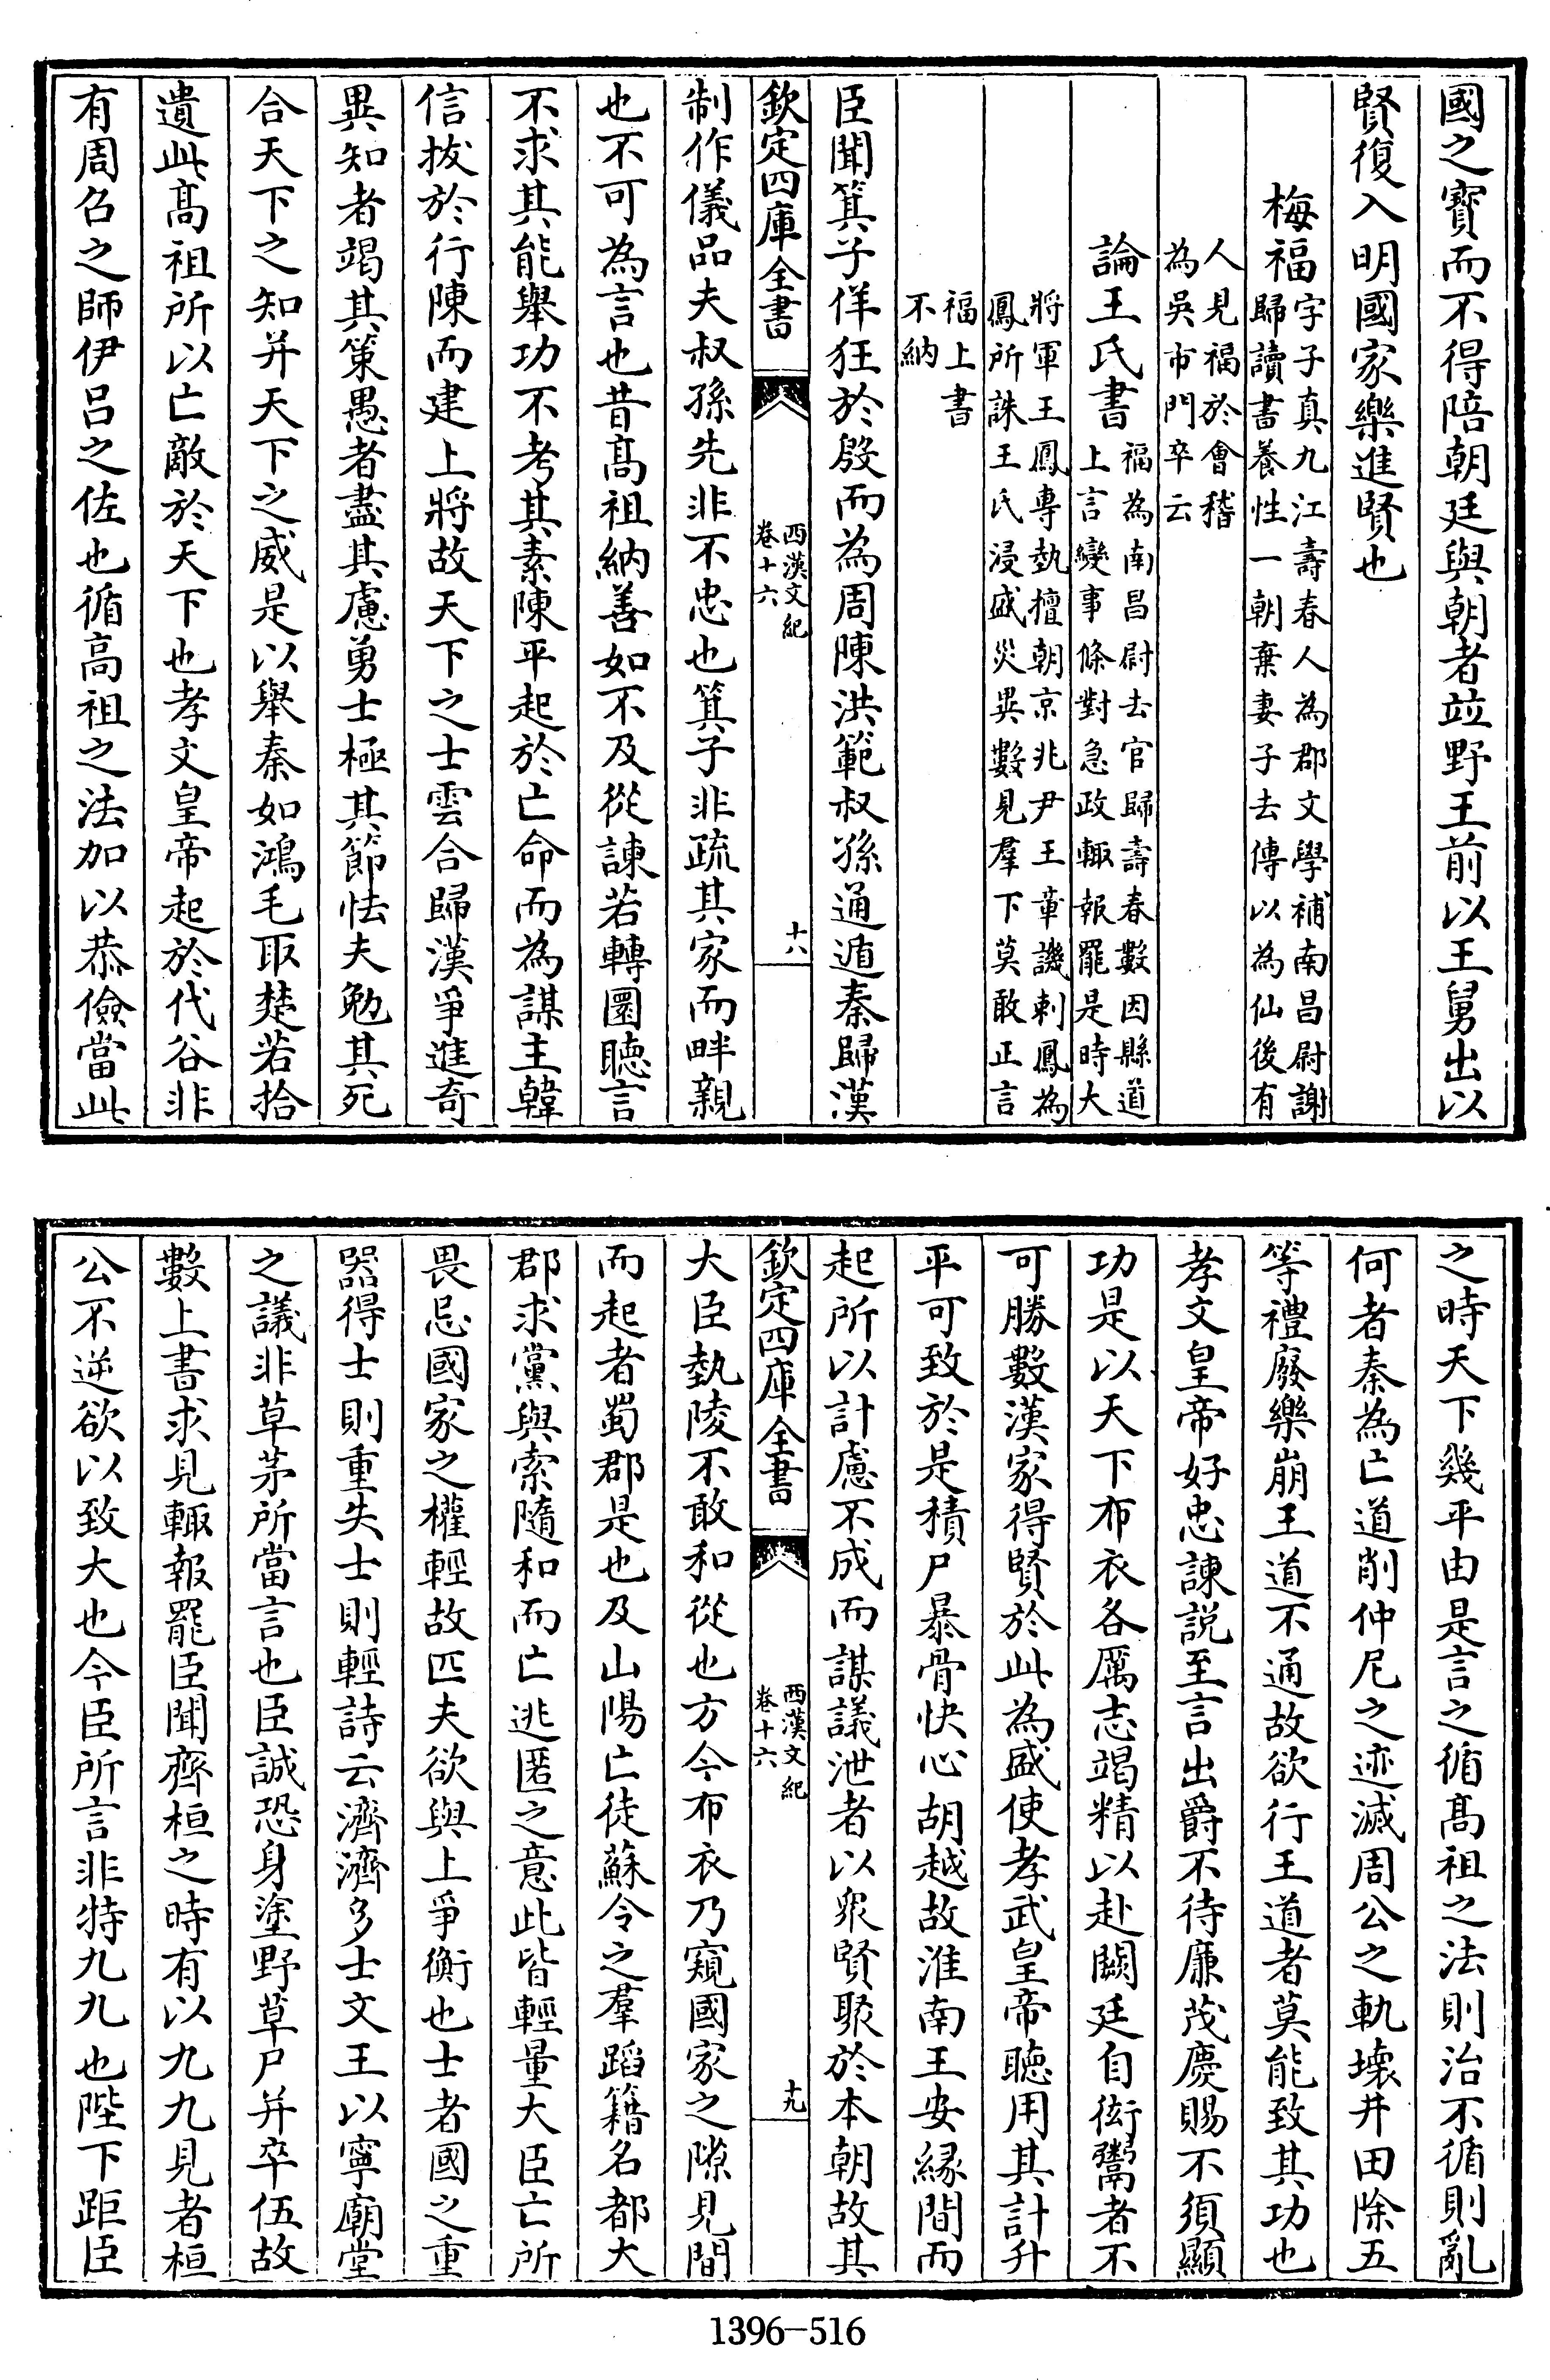 國之寳而不得陪朝廷與朝者竝野王前以王舅出以
賢復入明國家樂進賢也
梅福字子真九江壽春人為郡文學補南昌尉謝
歸讀書養性一朝棄妻子去傳以為仙後有
人見福於會稽
為吳市門卒云
論王氏書福為南昌尉去官歸壽春數因縣道
上言變事條對急政輙報罷是時大
將軍王鳳専埶擅朝京兆尹王章譏刺鳳為
鳳所誅王氏浸盛災異數見羣下莫敢正言
福上書
不納
臣聞箕子佯狂於殷而為周陳洪範叔孫通遁秦歸漢
欽定四庫全書
西漢文紀
卷十六
十八
制作儀品夫叔孫先非不忠也箕子非疏其家而畔親
也不可為言也昔髙祖納善如不及從諫若轉圜聽言
不求其能舉功不考其素陳平起於亡命而為謀主韓
信拔於行陳而建上將故天下之士雲合歸漢爭進奇
異知者竭其策愚者盡其慮勇士極其節怯夫勉其死
合天下之知并天下之威是以舉秦如鴻毛取楚若拾
遺此髙祖所以亡敵於天下也孝文皇帝起於代谷非
有周召之師伊呂之佐也循高祖之法加以恭儉當此
之時天下幾平由是言之循髙祖之法則治不循則亂
何者秦為亡道削仲尼之迹滅周公之軌壊井田除五
等禮廢樂崩王道不通故欲行王道者莫能致其功也
孝文皇帝好忠諫説至言出爵不待廉茂慶賜不須顯
功是以天下布衣各厲志竭精以赴闕廷自衒鬻者不
可勝數漢家得賢於此為盛使孝武皇帝聴用其計升
平可致於是積尸暴骨快心胡越故淮南王安縁間而
起所以計慮不成而謀議泄者以衆賢聚於本朝故其
欽定四庫全書
西漢文紀
卷十六
十九
大臣埶陵不敢和從也方今布衣乃窺國家之隙見間
而起者蜀郡是也及山陽亡徒蘇令之羣蹈籍名都大
郡求黨與索隨和而亡逃匿之意此皆輕量大臣亡所
畏忌國家之權輕故匹夫欲與上爭衡也士者國之重
器得士則重失士則輕詩云濟濟多士文王以寧廟堂
之議非草茅所當言也臣誠恐身塗野草尸并卒伍故
數上書求見輙報罷臣聞齊桓之時有以九九見者桓
公不逆欲以致大也今臣所言非特九九也陛下距臣
1396-516